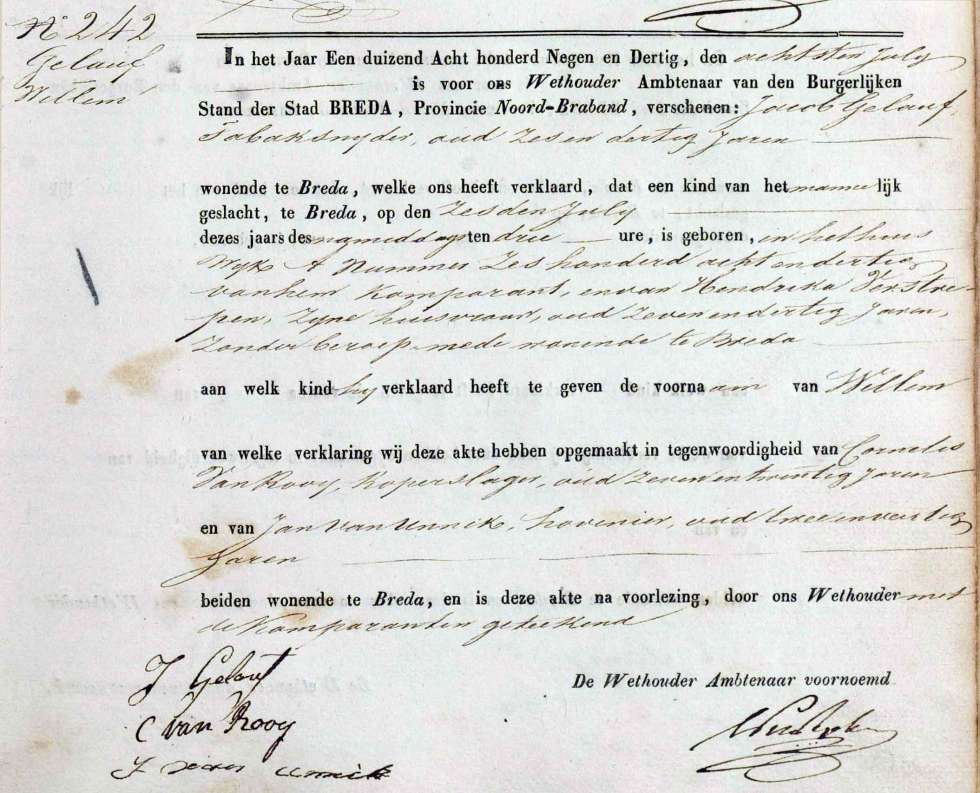 No 242
Gelauf
Willem
In het Jaar Een duizend Acht honderd Negen en Dertig, den achtsten July
is voor ons Wethouder Ambtenaar van den Burgerlijken
Stand der Stad BREDA, Provincie Noord-Braband, verschenen: Jacob Gelauf,
Tabaksnyder, oud zes en dertig Jaren
wonende te Breda, welke ons heeft verklaard, dat een kind van het mannelijk
geslacht, te Breda, op den Zesden July
dezes jaars des namiddags ten drie ure, is geboren, in het huis
Wyk A Nummer Zes honderd acht en dertig
van hem Komparant, en van Hendrika Verstre-
pen, Zyne huisvrouw, oud Zeven en dertig Jaren,
Zonder beroep mede wonende te Breda
aan welk kind hy verklaard heeft te geven de voornaam van Willem
van welke verklaring wij deze akte hebben opgemaakt in tegenwoordigheid van Cornelis
Van Rooy, Koperslager, oud Zeven en twintig Jaren
en van Jan van Unnik, hovenier, oud twee en veertig
Jaren
beiden wonende te Breda, en is deze akte na voorlezing, door ons Wethouder met
de Komparanten geteekend
J Gelauf
C van Rooy
J van unnik
De Wethouder Ambtenaar voornoemd